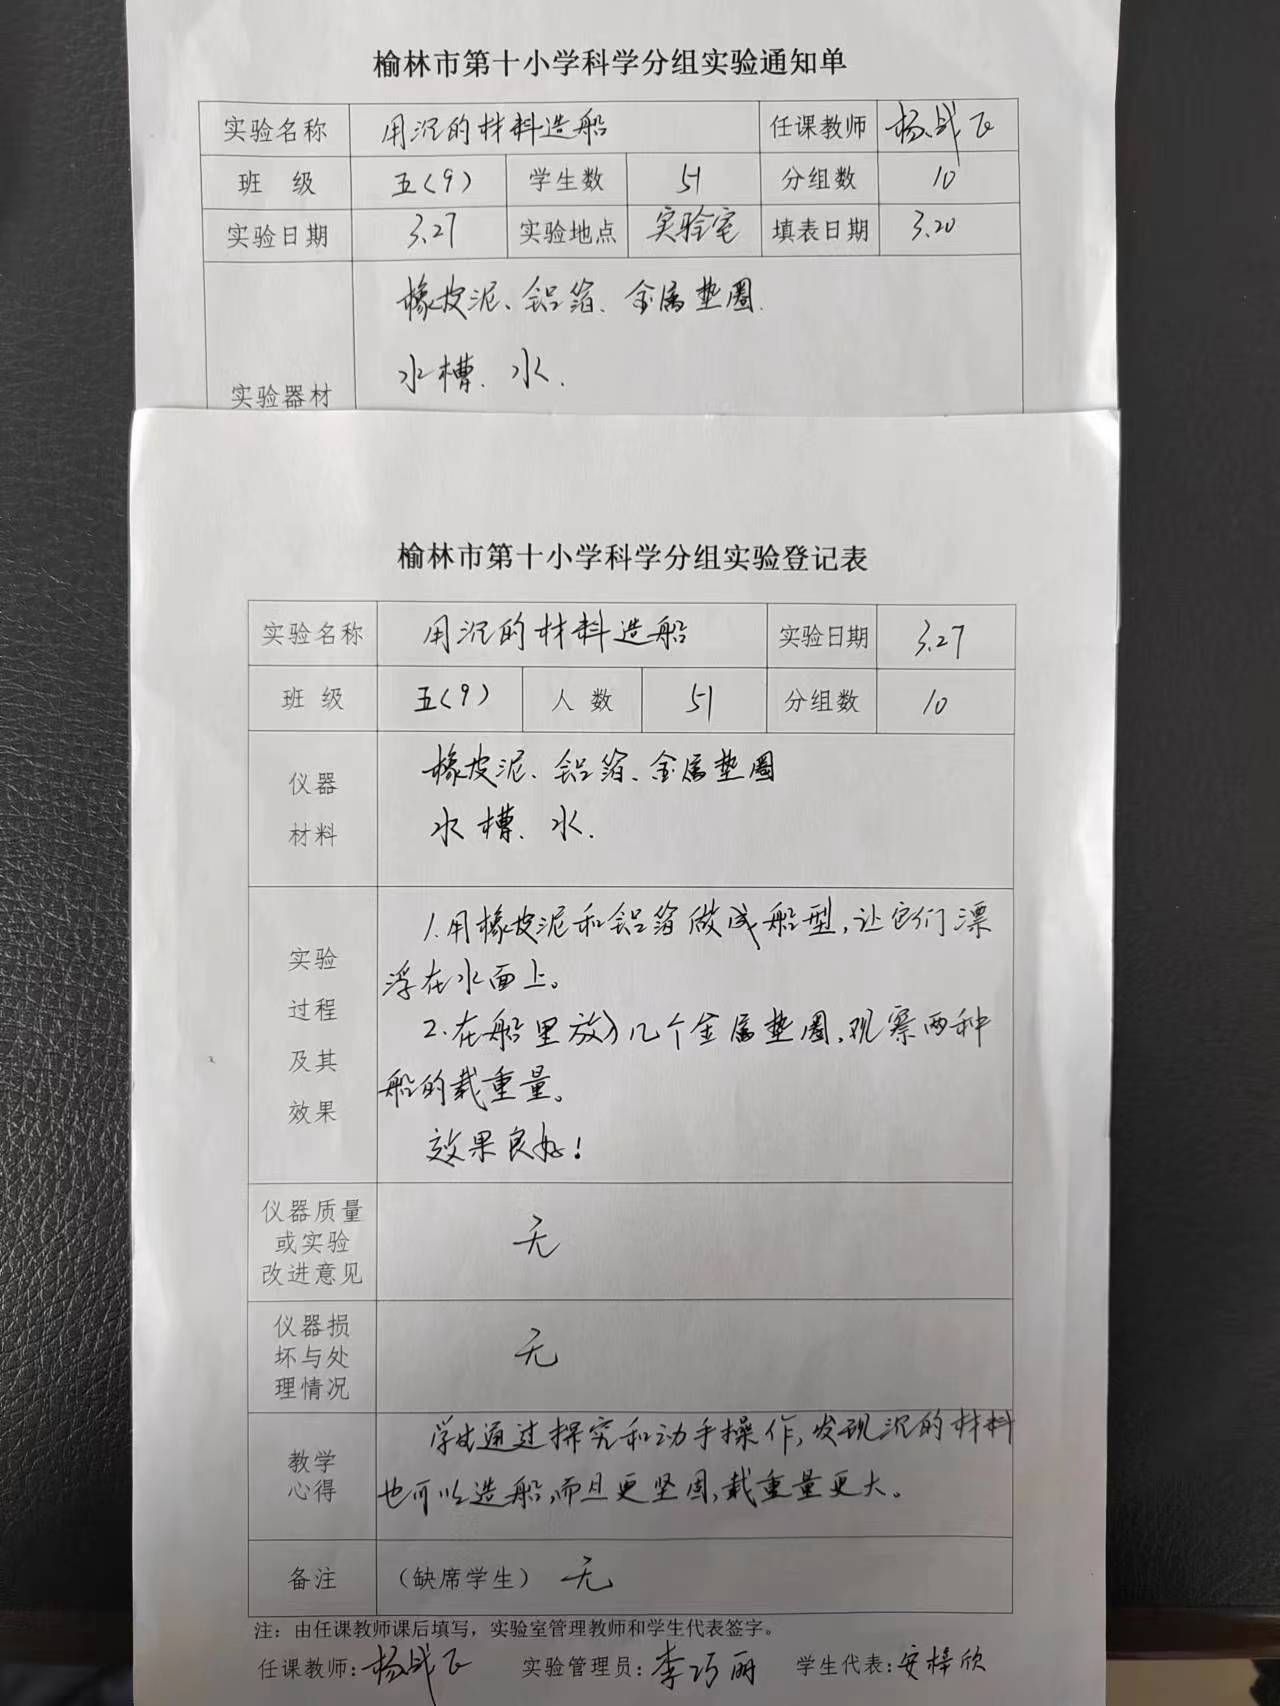 榆林市第十小学科学分组实验通知单
实验名称 用沉的材料造船 任课教师 杨战飞
班 级 五(9) 学生数 51 分组数 10
实验日期 3.27 实验地点 实验室 填表日期 3.20
橡皮泥、铝箔、金属垫圈.
水槽、水.
实验器材
榆林市第十小学科学分组实验登记表
实验名称 用沉的材料造船 实验日期 3.27
班 级 五(9) 人 数 51 分组数 10
仪器 橡皮泥、铝箔、金属垫圈
材料 水槽、水.
1.用橡皮泥和铝箔做成船型,让它们漂
实验 浮在水面上。
过程 2.在船里放入几个金属垫圈,观察两种
及其 船的载重量。
效果 效果良好!
仪器质量
或实验 无
改进意见
仪器损
坏与处 无
理情况
教学 学生通过探究和动手操作,发现沉的材料
心得 也可以造船,而且更坚固,载重量更大。
备注 (缺席学生) 无
注:由任课教师课后填写,实验室管理教师和学生代表签字。
任课教师:杨战飞 实验管理员:李巧丽 学生代表:安梓欣